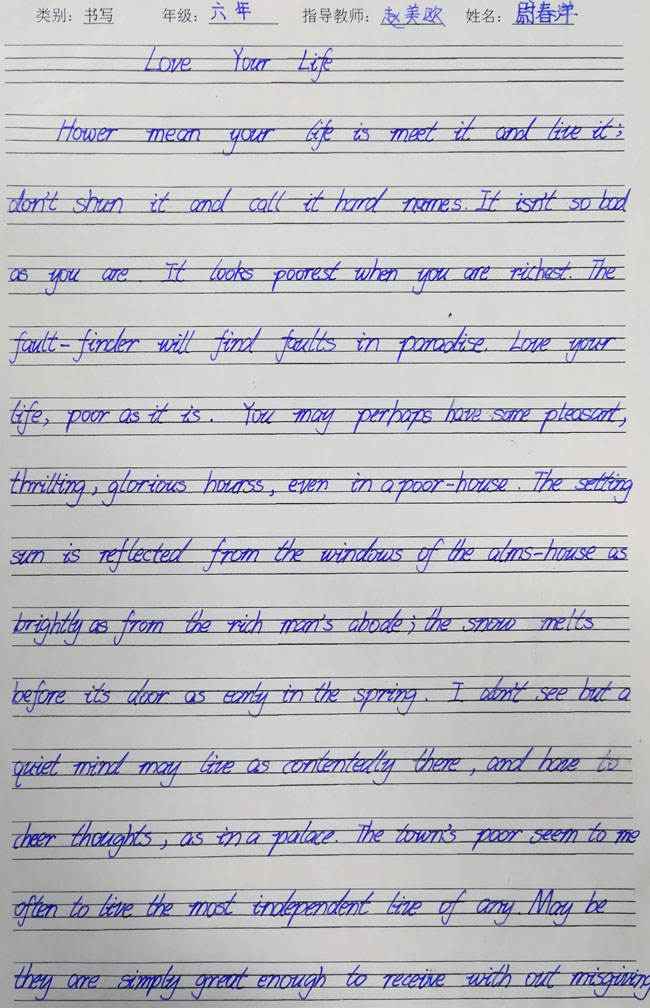 类别：书写 年级：六年 指导教师：赵美欧 姓名：尉春洋
Love Your Life
Hower mean your life is meet it and live it;
don't shun it and call it hard names. It isn't so bad
as you are. It looks poorest when you are richest. The
fault-finder will find faults in paradise. Love your
life, poor as it is. You may perhaps have some pleasant,
thrilling, glorious hourss, even in a poor-house. The setting
sun is reflected from the windows of the alms-house as
brightly as from the rich man's abode; the snow melts
before its door as early in the spring. I don't see but a
quiet mind may live as contentedly there, and have to
cheer thoughts, as in a palace. The town's poor seem to me
often to live the most independent live of any. May be
they are simply great enough to receive with out misgiving